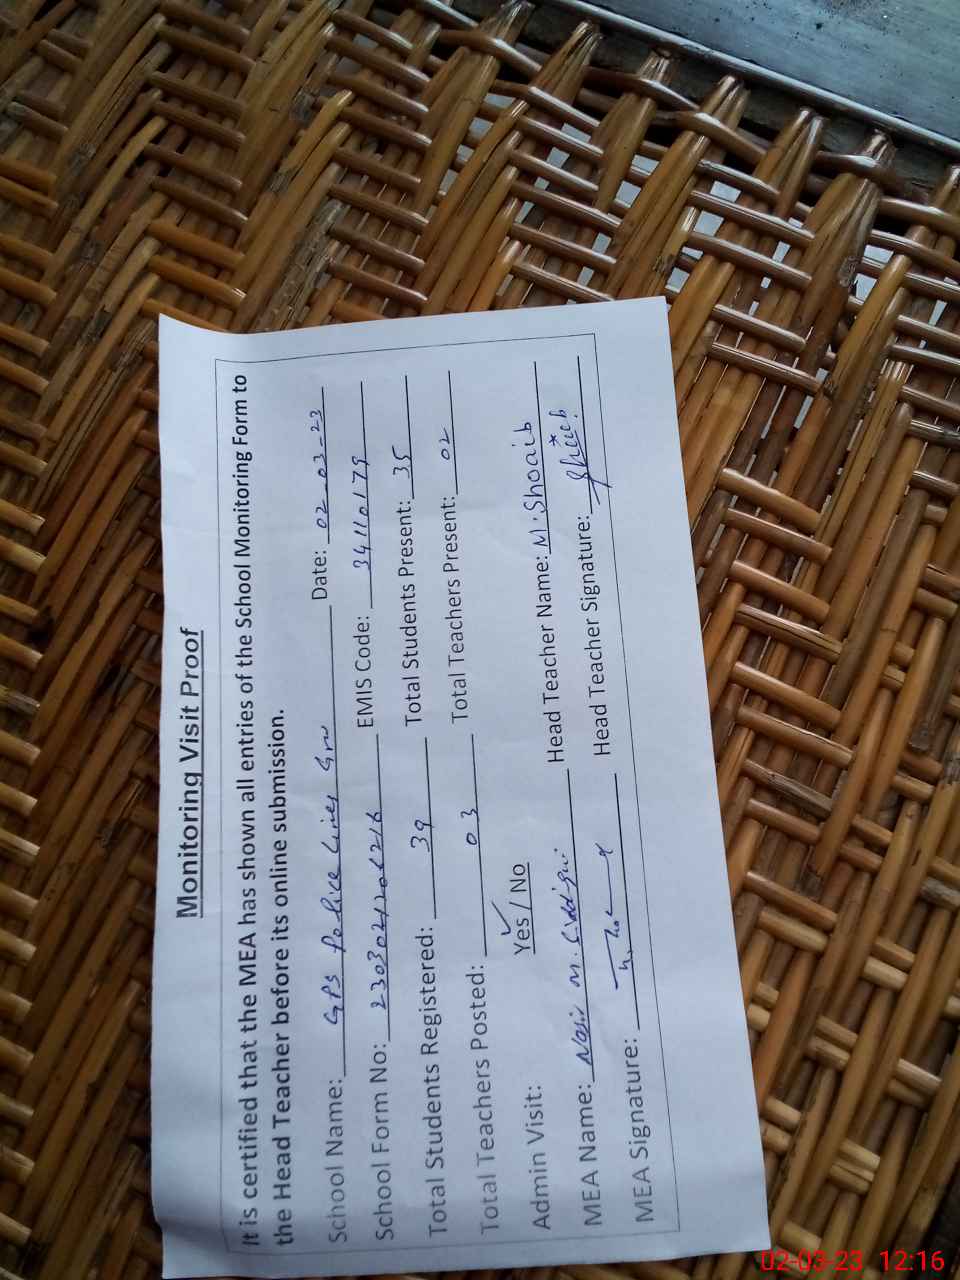 Monitoring Visit Proof
It is certified that the MEA has shown all entries of the School Monitoring Form to
the Head Teacher before its online submission.
School Name: GPS Police Lines Grw Date: 02-03-23
School Form No: EMIS Code: 34110179
Total Students Registered: 39 Total Students Present: 35
Total Teachers Posted: 03 Total Teachers Present: 02
Admin Visit: Yes / No
MEA Name: Nasir M. Head Teacher Name: M. Shoaib
MEA Signature: Head Teacher Signature:
02-03-23 12:16